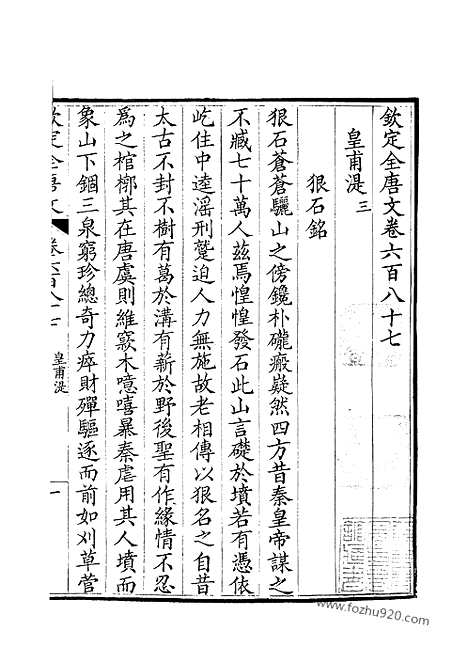 欽定全唐文卷六百八十七
皇甫湜三
狠石銘
狠石蒼蒼驪山之傍鑱朴礲瘢嶷然四方昔秦皇帝謀之
不臧七十萬人茲焉惶惶發石此山言礎於墳若有憑依
屹住中逵滛刑蹔迫人力無施故老相傳以狠名之自昔
太古不封不樹有葛於溝有薪於野後聖有作緣情不忍
爲之棺槨其在唐虞則維窾木噫嘻暴秦虐用其人墳而
象山下錮三泉窮珍總奇力瘁財殫驅逐而前如刈草菅
欽定全唐文
卷六百八十七
皇甫湜
一
www.fozhu920.com